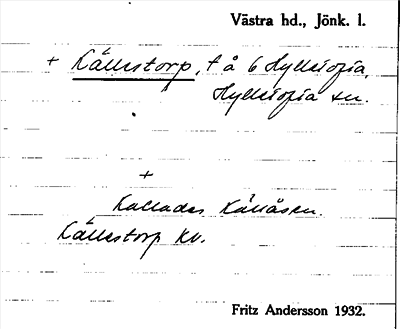 Västra hd., Jönk. l.
+ Källestorp, t å 6 Hylletofta,
Hylletofta sn.
+
Kallades Källåsen.
Källestorp kv.
Fritz Andersson 1932.